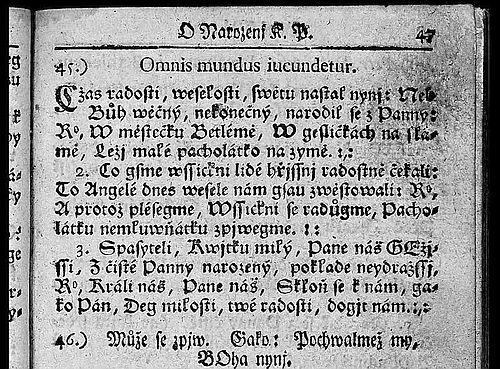 O Narozenj K. P. 47
45.) Omnis mundus iucundetur.
Čžas radosti, weselosti, swětu nastal nynj: Neb
Bůh wěčný, nekonečný, narodil se z Panny:
Ro, W městečku Betlémě, W gesličkách na sla-
mě, Ležj malé pacholátko na zymě. :,:
2. Co gsme wssickni lidé hřjssnj radostně čekali:
To Angelé dnes wesele nám gsau zwěstowali: Ro,
A protož plésegme, Wssickni se radůgme, Pacho-
látku nemluwňátku zpjwegme. : :
3. Spasyteli, Kwjtku milý, Pane náš GEžj-
ssi, Z čisté Panny narozený, poklade neydražssj,
Ro, Králi náš, Pane náš, Skloň se k nám, ga-
ko Pán, Deg milosti, twé radosti, dogjt nám. :,:
46.) Může se zpjw. Gako: Pochwalmež my,
BOha nynj.